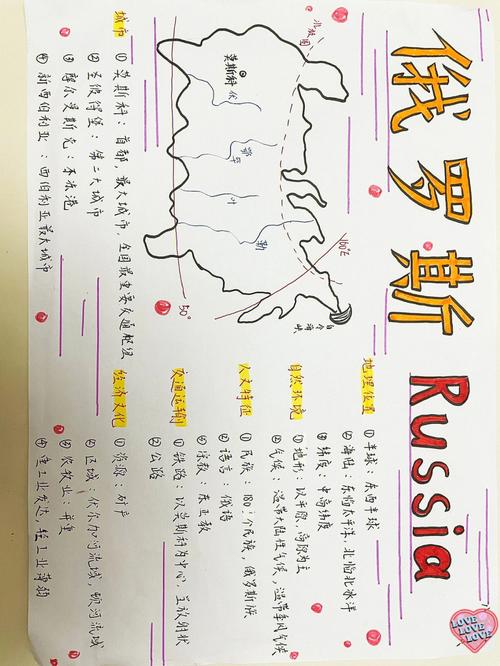 俄罗斯 Russia
北极圈
莫斯科
伏
鄂毕
叶
勒
160°E
50°
白令海峡
地理位置
①半球：东西半球
②海陆：东临太平洋，北临北冰洋
③纬度：中高纬度
自然环境
①地形：以平原、高原为主
②气候：温带大陆性气候，温带季风气候
人文特征
①民族：180个民族，俄罗斯族
②语言：俄语
③宗教：东正教
交通运输
①铁路：以莫斯科为中心，呈放射状
②公路
经济文化
①资源：矿产
②区域：伏尔加河流域，顿河流域
③农牧业：并重
④重工业发达，轻工业薄弱
城市
①莫斯科：首都，最大城市，全国最重要交通枢纽
②圣彼得堡：第二大城市
③摩尔曼斯克：不冻港
④新西伯利亚：西伯利亚最大城市
LOVE
LOVE
LOVE